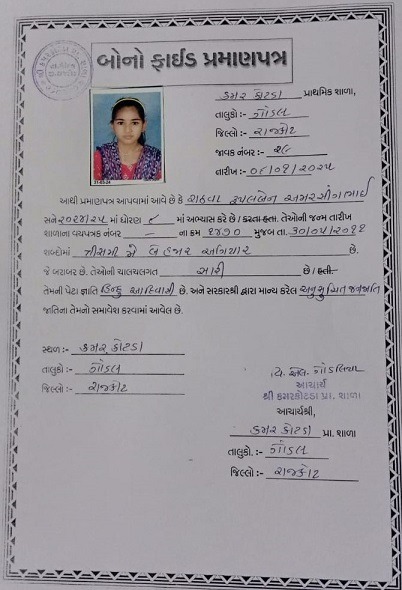 બોનોફાઈડ પ્રમાણપત્ર
કમર કોટડા પ્રાથમિક શાળા,
તાલુકો :- ગોંડલ
જિલ્લો :- રાજકોટ
જાવક નંબર :- ૨૯
તારીખ :- ૦૬/૦૧/૨૦૨૫
21-03-24
આથી પ્રમાણપત્ર આપવામાં આવે છે કે રાઠવા રૂપલબેન અમરસીંગભાઈ
સને ૨૦૨૪/૨૫ માં ધોરણ ૮ માં અભ્યાસ કરે છે / કરતા હતા. તેઓની જન્મ તારીખ
શાળાના વયપત્રક નંબર — ના ક્રમ ૧૪૭૦ મુજબ તા. ૩૦/૦૫/૨૦૧૧
શબ્દોમાં ત્રીસમી મે બે હજાર અગિયાર છે.
જે બરાબર છે. તેઓની ચાલચલગત સારી છે / હતી.
તેમની પેટા જ્ઞાતિ હિન્દુ આદિવાસી છે. અને સરકારશ્રી દ્વારા માન્ય કરેલ અનુસુચિત જનજાતિ
જાતિના તેમનો સમાવેશ કરવામાં આવેલ છે.
સ્થળ :- કમર કોટડા
તાલુકો :- ગોંડલ
જિલ્લો :- રાજકોટ
આચાર્ય
શ્રી કમરકોટડા પ્રા. શાળા
આચાર્યશ્રી,
કમર કોટડા પ્રા. શાળા
તાલુકો. :- ગોંડલ
જિલ્લો. :- રાજકોટ